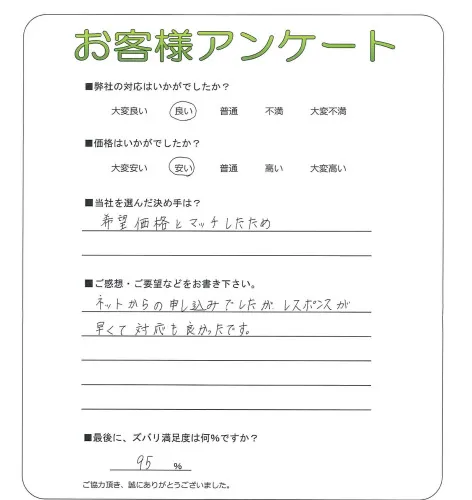 お客様アンケート
■弊社の対応はいかがでしたか？
大変良い 良い 普通 不満 大変不満
■価格はいかがでしたか？
大変安い 安い 普通 高い 大変高い
■当社を選んだ決め手は？
希望価格とマッチしたため
■ご感想・ご要望などをお書き下さい。
ネットからの申し込みでしたが レスポンスが
早くて対応も良かったです。
■最後に、ズバリ満足度は何％ですか？
95 ％
ご協力頂き、誠にありがとうございました。